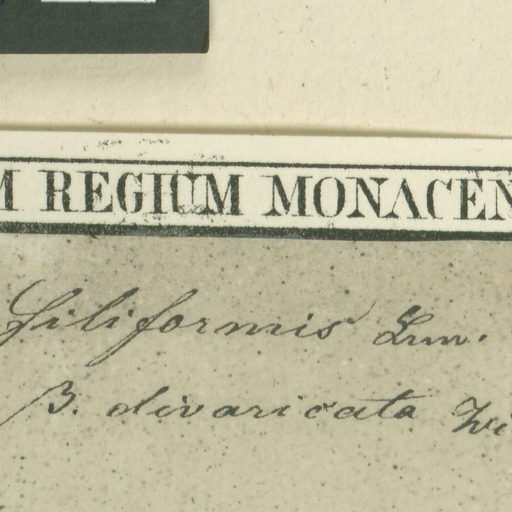 M REGIUM MONACEN
filiformis Lin.
β. divaricata